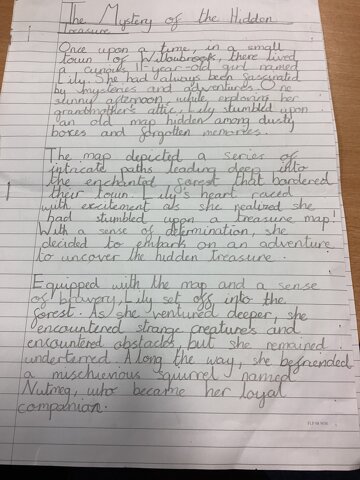 The Mystery of the Hidden
Treasure
Once upon a time, in a small
town of Willowbrook, there lived
a curious 11-year-old girl named
Lily. She had always been fascinated
by mysteries and adventures. One
sunny afternoon, while exploring her
grandmother's attic, Lily stumbled upon
an old map hidden among dusty
boxes and forgotten memories.
The map depicted a series of
intricate paths leading deep into
the enchanted forest that bordered
their town. Lily's heart raced
with excitement as she realized she
had stumbled upon a treasure map!
With a sense of determination, she
decided to embark on an adventure
to uncover the hidden treasure.
Equipped with the map and a sense
of bravory, Lily set off into the
forest. As she ventured deeper, she
encountered strange creatures and
encountered obstacles, but she remained
underterred. Along the way, she befriended
a mischievious squirrel named
Nutmeg, who became her loyal
companian.